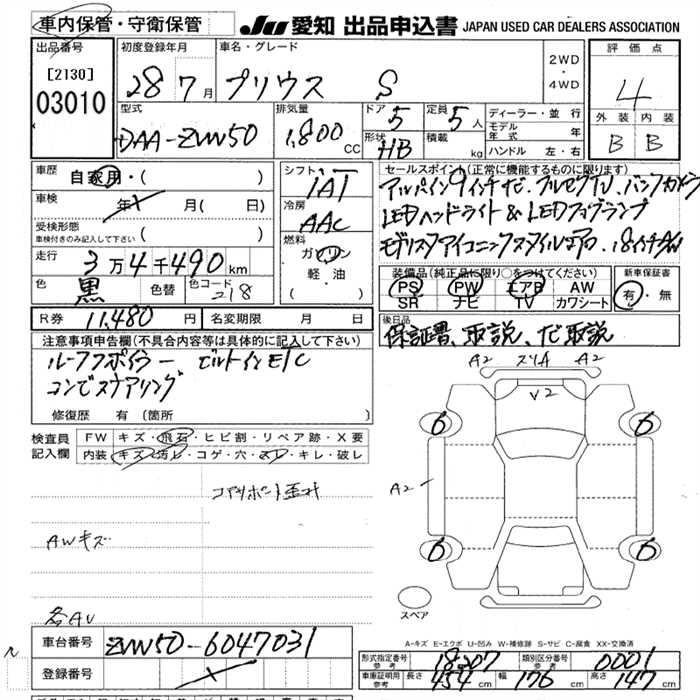 車内保管・守衛保管
JU 愛知 出品申込書 JAPAN USED CAR DEALERS ASSOCIATION
出品番号
[2130]
03010
初度登録年月
28 7月
車名・グレード
プリウス S
2WD
・
4WD
評価点
4
外装 内装
B B
型式
DAA-ZVW50
排気量
1,800 CC
ドア 5
形状 HB
定員 5人
積載 kg
ディーラー・並行
モデル年式 年
ハンドル 左・右
車歴 自家用・( )
車検 年 月( 日)
受検形態
車検付きのみ記入して下さい ( )
走行 3万4千490km
色 黒 色替 色コード 218
シフト
IAT
冷房
AAC
燃料
ガソリン
軽・油
( )
セールスポイント(正常に機能するものに限ります)
アルパイン9インチナビ.フルセグTV.バックカメラ
LEDヘッドライト&LEDフォグランプ
モデリスタアイコニックスタイルエアロ.18インチAW
装備品(純正品に限り○をつけてください)
PS PW エアB AW
SR ナビ TV カワシート
新車保証書
有・無
R券 11,480円 名変期限 月 日
後日品
保証書、取説、ナビ取説
注意事項申告欄(不具合内容等は具体的に記入して下さい)
ルーフスポイラー ビルトインETC
コンビステアリング
修復歴 有(箇所 )
検査員
記入欄
FW キズ・飛石・ヒビ割・リペア跡・X要
内装 キズ・汚レ・コゲ・穴・スレ・キレ・破レ
コアサポート歪ミ
AWキズ
各AU
A2 スリA A2
V2
6 6
A2
6 6
スペア
A-キズ E-エクボ U-凹み W-補修跡 S-サビ C-腐食 XX-交換済
車台番号 ZVW50-6047031
登録番号
形式指定番号 参考 18207
類別区分番号 参考 0001
車庫証明用 参考 長さ 454cm 幅 176cm 高さ 147cm